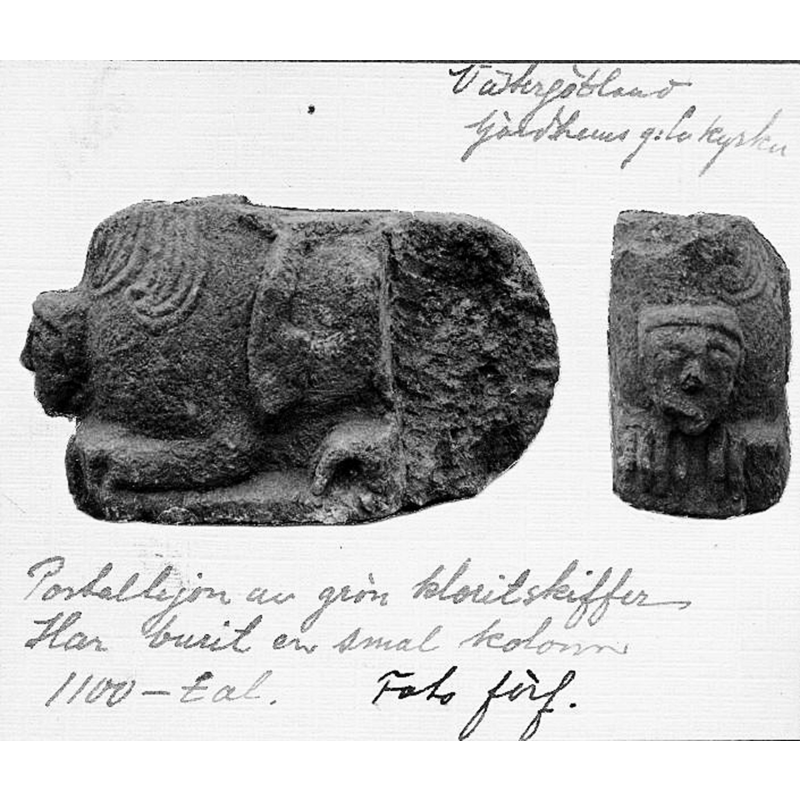 Västergötland
Gärdhems g:la kyrka
Portallejon av grön kloritskiffer
Har burit en smal kolonn
1100-tal. Foto förf.